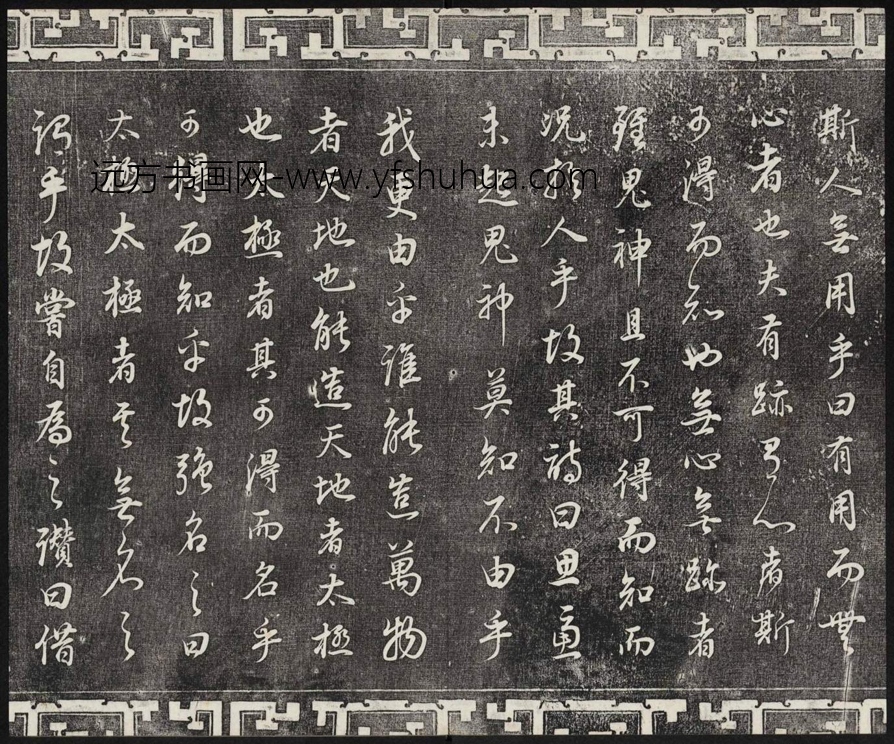 斯人無用乎曰有用而無
心者也夫有跡有心者斯
可得而知也無心無跡者
雖鬼神且不可得而知而
況於人乎故其詩曰思慮
未起鬼神莫知不由乎
我更由乎誰能造萬物
者天地也能造天地者太極
也太極者其可得而名乎
可得而知乎故強名之曰
太極太極者其無名之
謂乎故嘗自為之讚曰借
远方书画网-www.yfshuhua.com